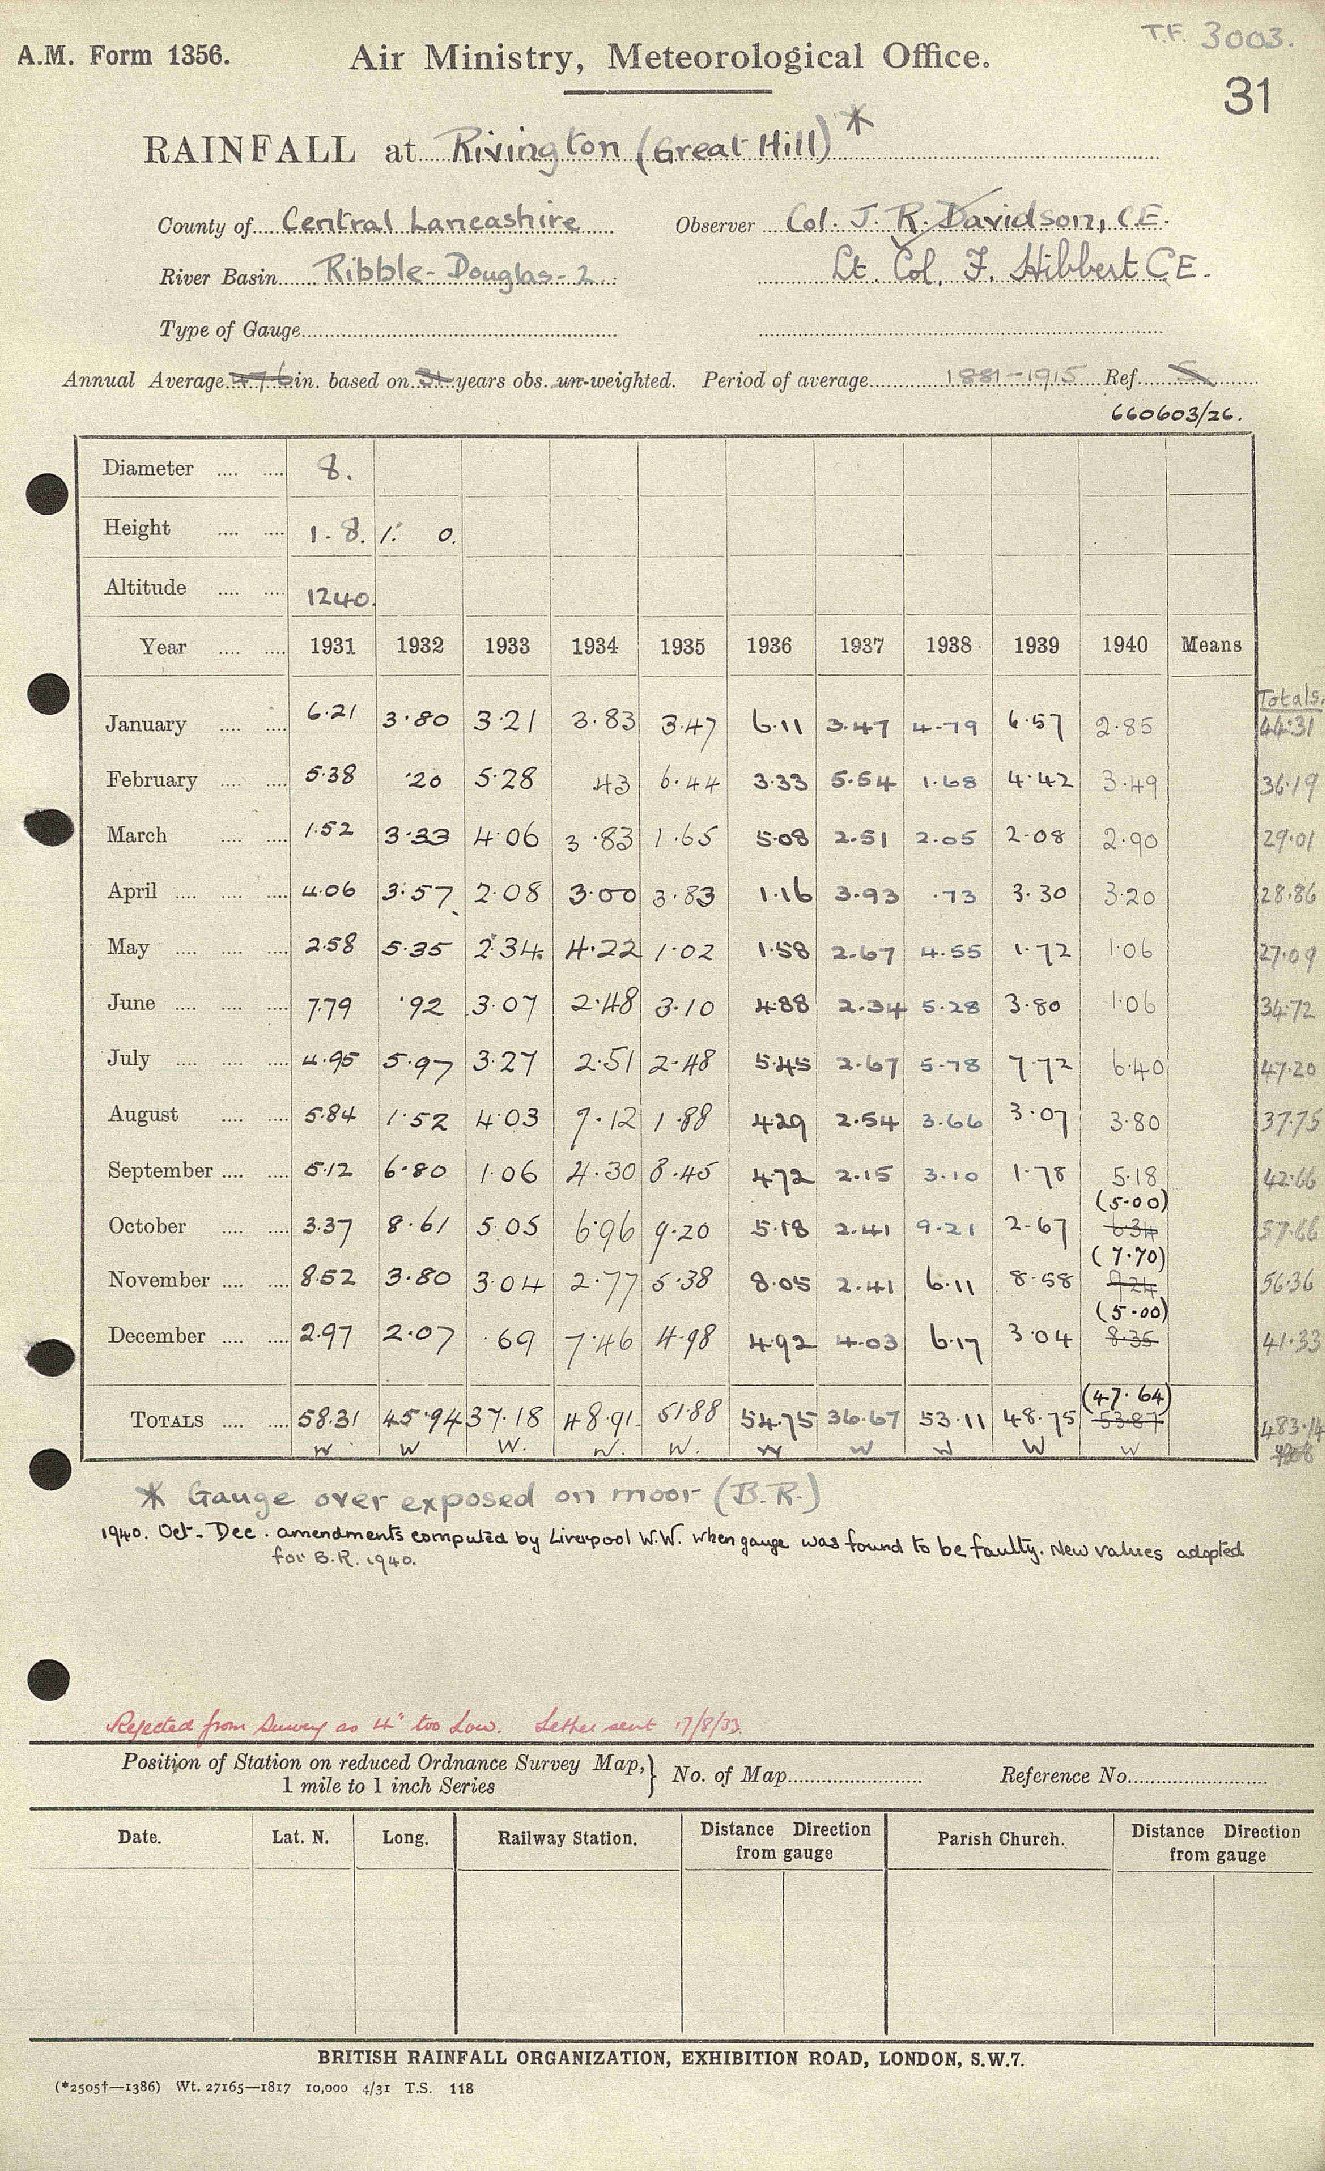 T.F. 3003.
A.M. Form 1356.
Air Ministry, Meteorological Office.
31
RAINFALL at Rivington (Great Hill) *
County of Central Lancashire Observer Col. J. R. Davidson, C.E.
River Basin Ribble-Douglas-2 Lt. Col. F. Hibbert C.E.
Type of Gauge
Annual Average 47.6 in. based on 31 years obs. un-weighted. Period of average 1881-1915 Ref. 5
660603/26.
Diameter 8.
Height 1.8. 1. 0.
Altitude 1240.
Year 1931 1932 1933 1934 1935 1936 1937 1938 1939 1940 Means
Totals.
January 6.21 3.80 3.21 3.83 3.47 6.11 3.47 4.79 6.57 2.85 44.31
February 5.38 .20 5.28 .43 6.44 3.33 5.54 1.68 4.42 3.49 36.19
March 1.52 3.33 4.06 3.83 1.65 5.08 2.51 2.05 2.08 2.90 29.01
April 4.06 3.57 2.08 3.00 3.83 1.16 3.93 .73 3.30 3.20 28.86
May 2.58 5.35 2.34 4.22 1.02 1.58 2.67 4.55 1.72 1.06 27.09
June 7.79 .92 3.07 2.48 3.10 4.88 2.34 5.28 3.80 1.06 34.72
July 4.95 5.97 3.27 2.51 2.48 5.45 2.67 5.78 7.72 6.40 47.20
August 5.84 1.52 4.03 7.12 1.88 4.29 2.54 3.66 3.07 3.80 37.75
September 5.12 6.80 1.06 4.30 8.45 4.72 2.15 3.10 1.78 5.18 42.66
(5.00)
October 3.37 8.61 5.05 6.96 9.20 5.18 2.41 9.21 2.67 6.34 57.66
(7.70)
November 8.52 3.80 3.04 2.77 5.38 8.05 2.41 6.11 8.58 9.24 56.36
(5.00)
December 2.97 2.07 .69 7.46 4.98 4.92 4.03 6.17 3.04 8.35 41.33
(47.64)
TOTALS 58.31 45.94 37.18 48.91 51.88 54.75 36.67 53.11 48.75 53.87 483.14
W W W. W. W. W W W W W
* Gauge over exposed on moor (B.R.)
1940. Oct-Dec. amendments computed by Liverpool W.W. when gauge was found to be faulty. New values adopted
for B.R. 1940.
Rejected from Survey as 4" too Low. Letter sent 17/8/33.
Position of Station on reduced Ordnance Survey Map, } No. of Map Reference No.
1 mile to 1 inch Series
Date. Lat. N. Long. Railway Station. Distance Direction from gauge Parish Church. Distance Direction from gauge
BRITISH RAINFALL ORGANIZATION, EXHIBITION ROAD, LONDON, S.W.7.
(*2505†—1386) Wt. 27165—1817 10,000 4/31 T.S. 118